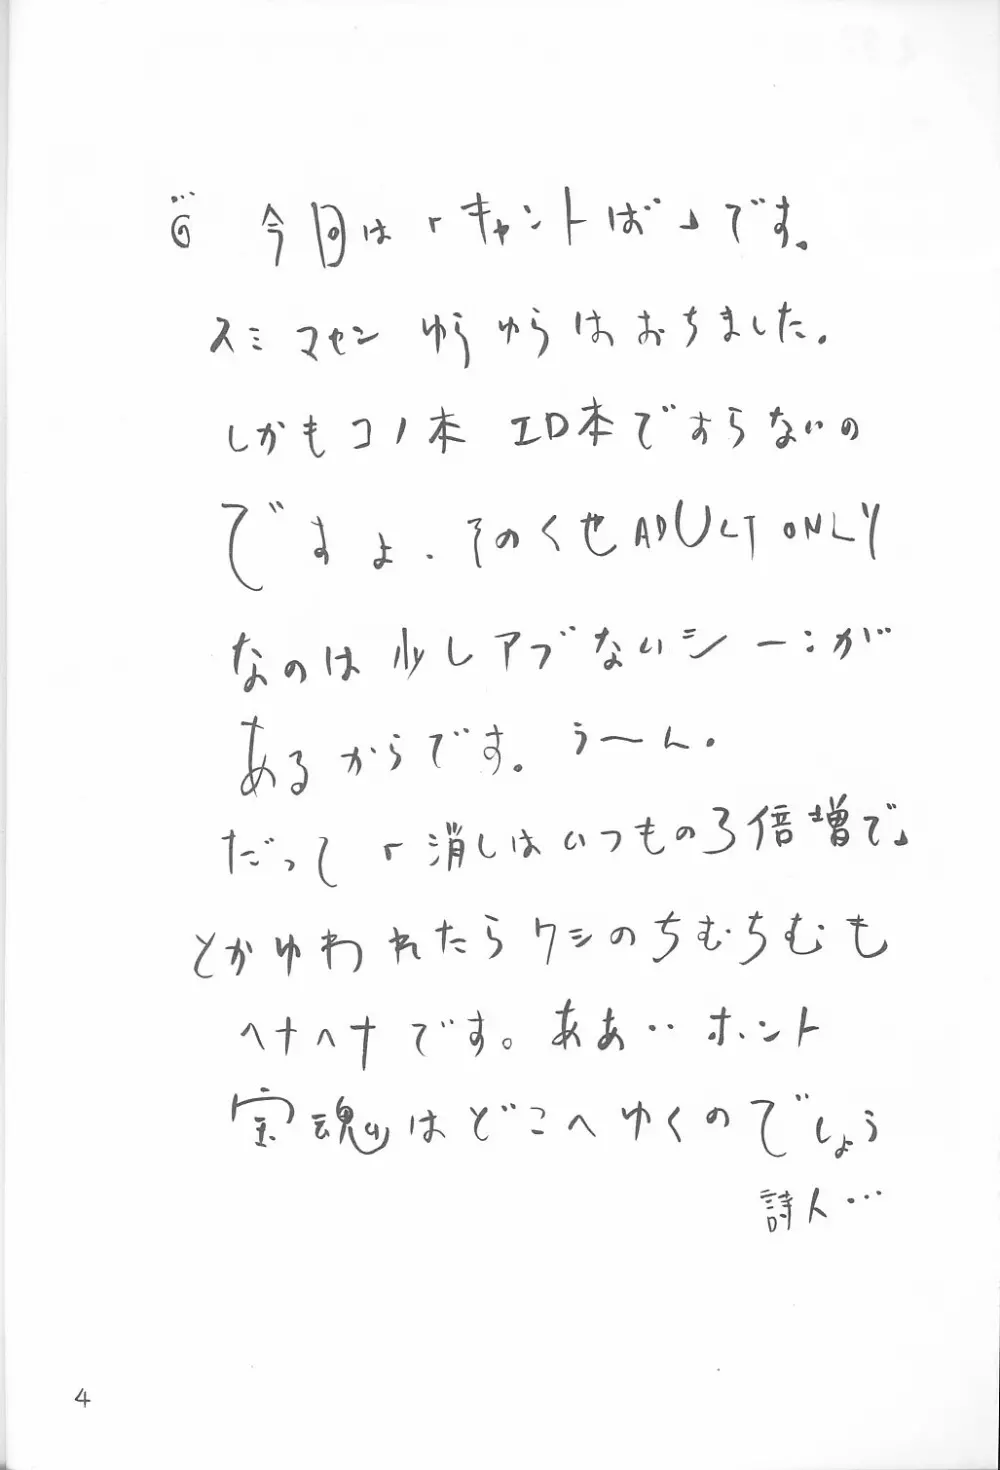 今回は「キャントば」です。
スミマセン ゆらゆらはおちました。
しかもコノ本 エロ本ですらないの
ですよ。そのくせADULT ONLY
なのは少しアブないシーンが
あるからです。う〜ん。
だって「消しはいつもの3倍増で」
とかゆわれたらワシのちむちむも
ヘナヘナです。ああ‥ホント
宝魂はどこへゆくのでしょう
詩人…
4